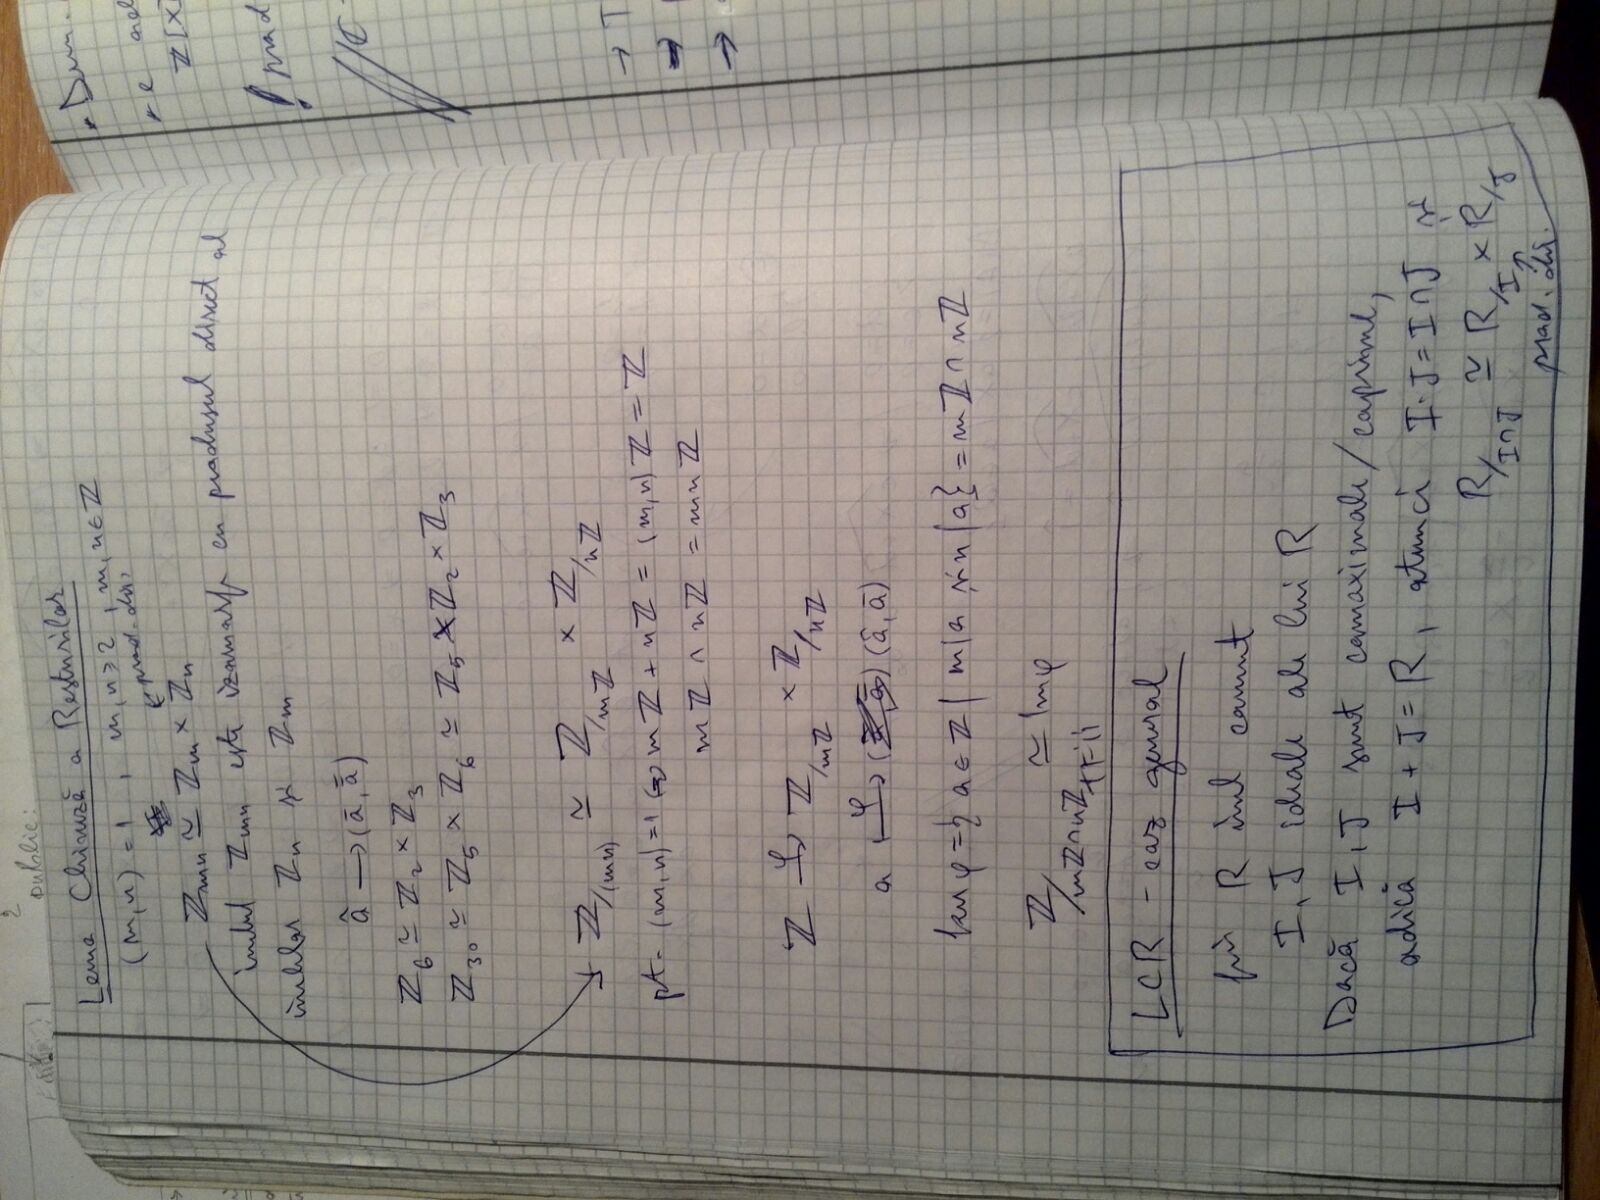 Lema Chineză a Resturilor
(m,n) = 1 , m,n ≥ 2 , m,n ∈ ℤ
prod. dir.
ℤmn ≃ ℤm × ℤn
inelul ℤmn este izomorf cu produsul direct al
inelelor ℤn și ℤm
â → (ā, ā̄)
ℤ6 ≃ ℤ2 × ℤ3
ℤ30 ≃ ℤ5 × ℤ6 ≃ ℤ5 × ℤ2 × ℤ3
ℤ/(mn) ≃ ℤ/mℤ × ℤ/nℤ
pt. (m,n) = 1 (⇒) mℤ + nℤ = (m,n)ℤ = ℤ
mℤ ∩ nℤ = mnℤ
ℤ →φ ℤ/mℤ × ℤ/nℤ
a →φ (ā, ā̄)
ker φ = { a ∈ ℤ | m|a și n|a } = mℤ ∩ nℤ
ℤ/mℤ∩nℤ ≃ Imφ
TFII
LCR - caz general
fie R inel comut
I, J ideale ale lui R
Dacă I, J sunt comaximale / coprime,
adică I + J = R, atunci I·J = I∩J și
R/I∩J ≃ R/I × R/J
prod. dir.
* Dum
* e
ℤ[X]
prod
→ T
→
→